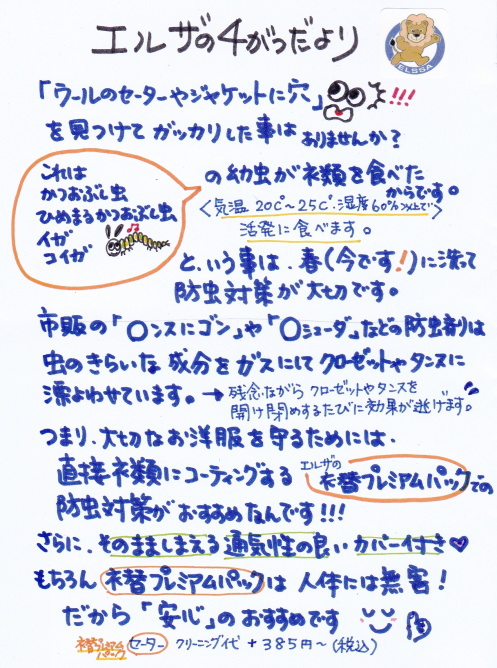 エルザの4がつだより
ELSSA
「ウールのセーターやジャケットに穴」!!!
を見つけてガッカリした事はありませんか?
これは
かつおぶし虫
ひめまるかつおぶし虫
イガ
コイガ
の幼虫が衣類を食べた
からです。
<気温20℃~25℃・湿度60%以上で>
活発に食べます。
と、いう事は、春(今です!)に洗って
防虫対策が大切です。
市販の「〇ンスにゴン」や「〇シューダ」などの防虫剤は
虫のきらいな成分をガスにしてクローゼットやタンスに
漂よわせています。→残念ながらクローゼットやタンスを
開け閉めするたびに効果が逃げます。
つまり、大切なお洋服を守るためには、
直接衣類にコーティングするエルザの
衣替プレミアムパックでの
防虫対策がおすすめなんです!!!
さらに、そのまましまえる通気性の良いカバー付き♥
もちろん衣替プレミアムパックは人体には無害!
だから「安心」のおすすめです
衣替プレミアムパック セーター クリーニング代+385円~(税込)